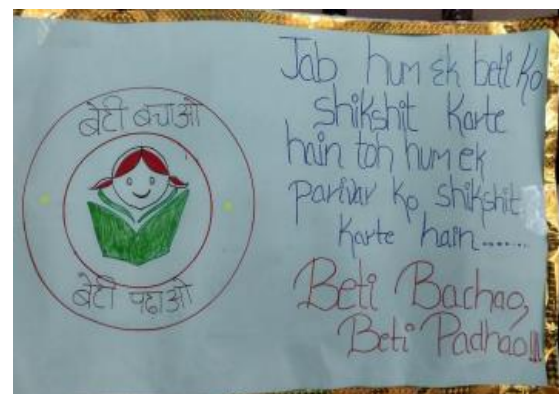 बेटी बचाओ
बेटी पढाओ
Jab hum ek beti ko
shikshit karte
hain toh hum ek
parivar ko shikshit
karte hain......
Beti Bachao,
Beti Padhao!!!